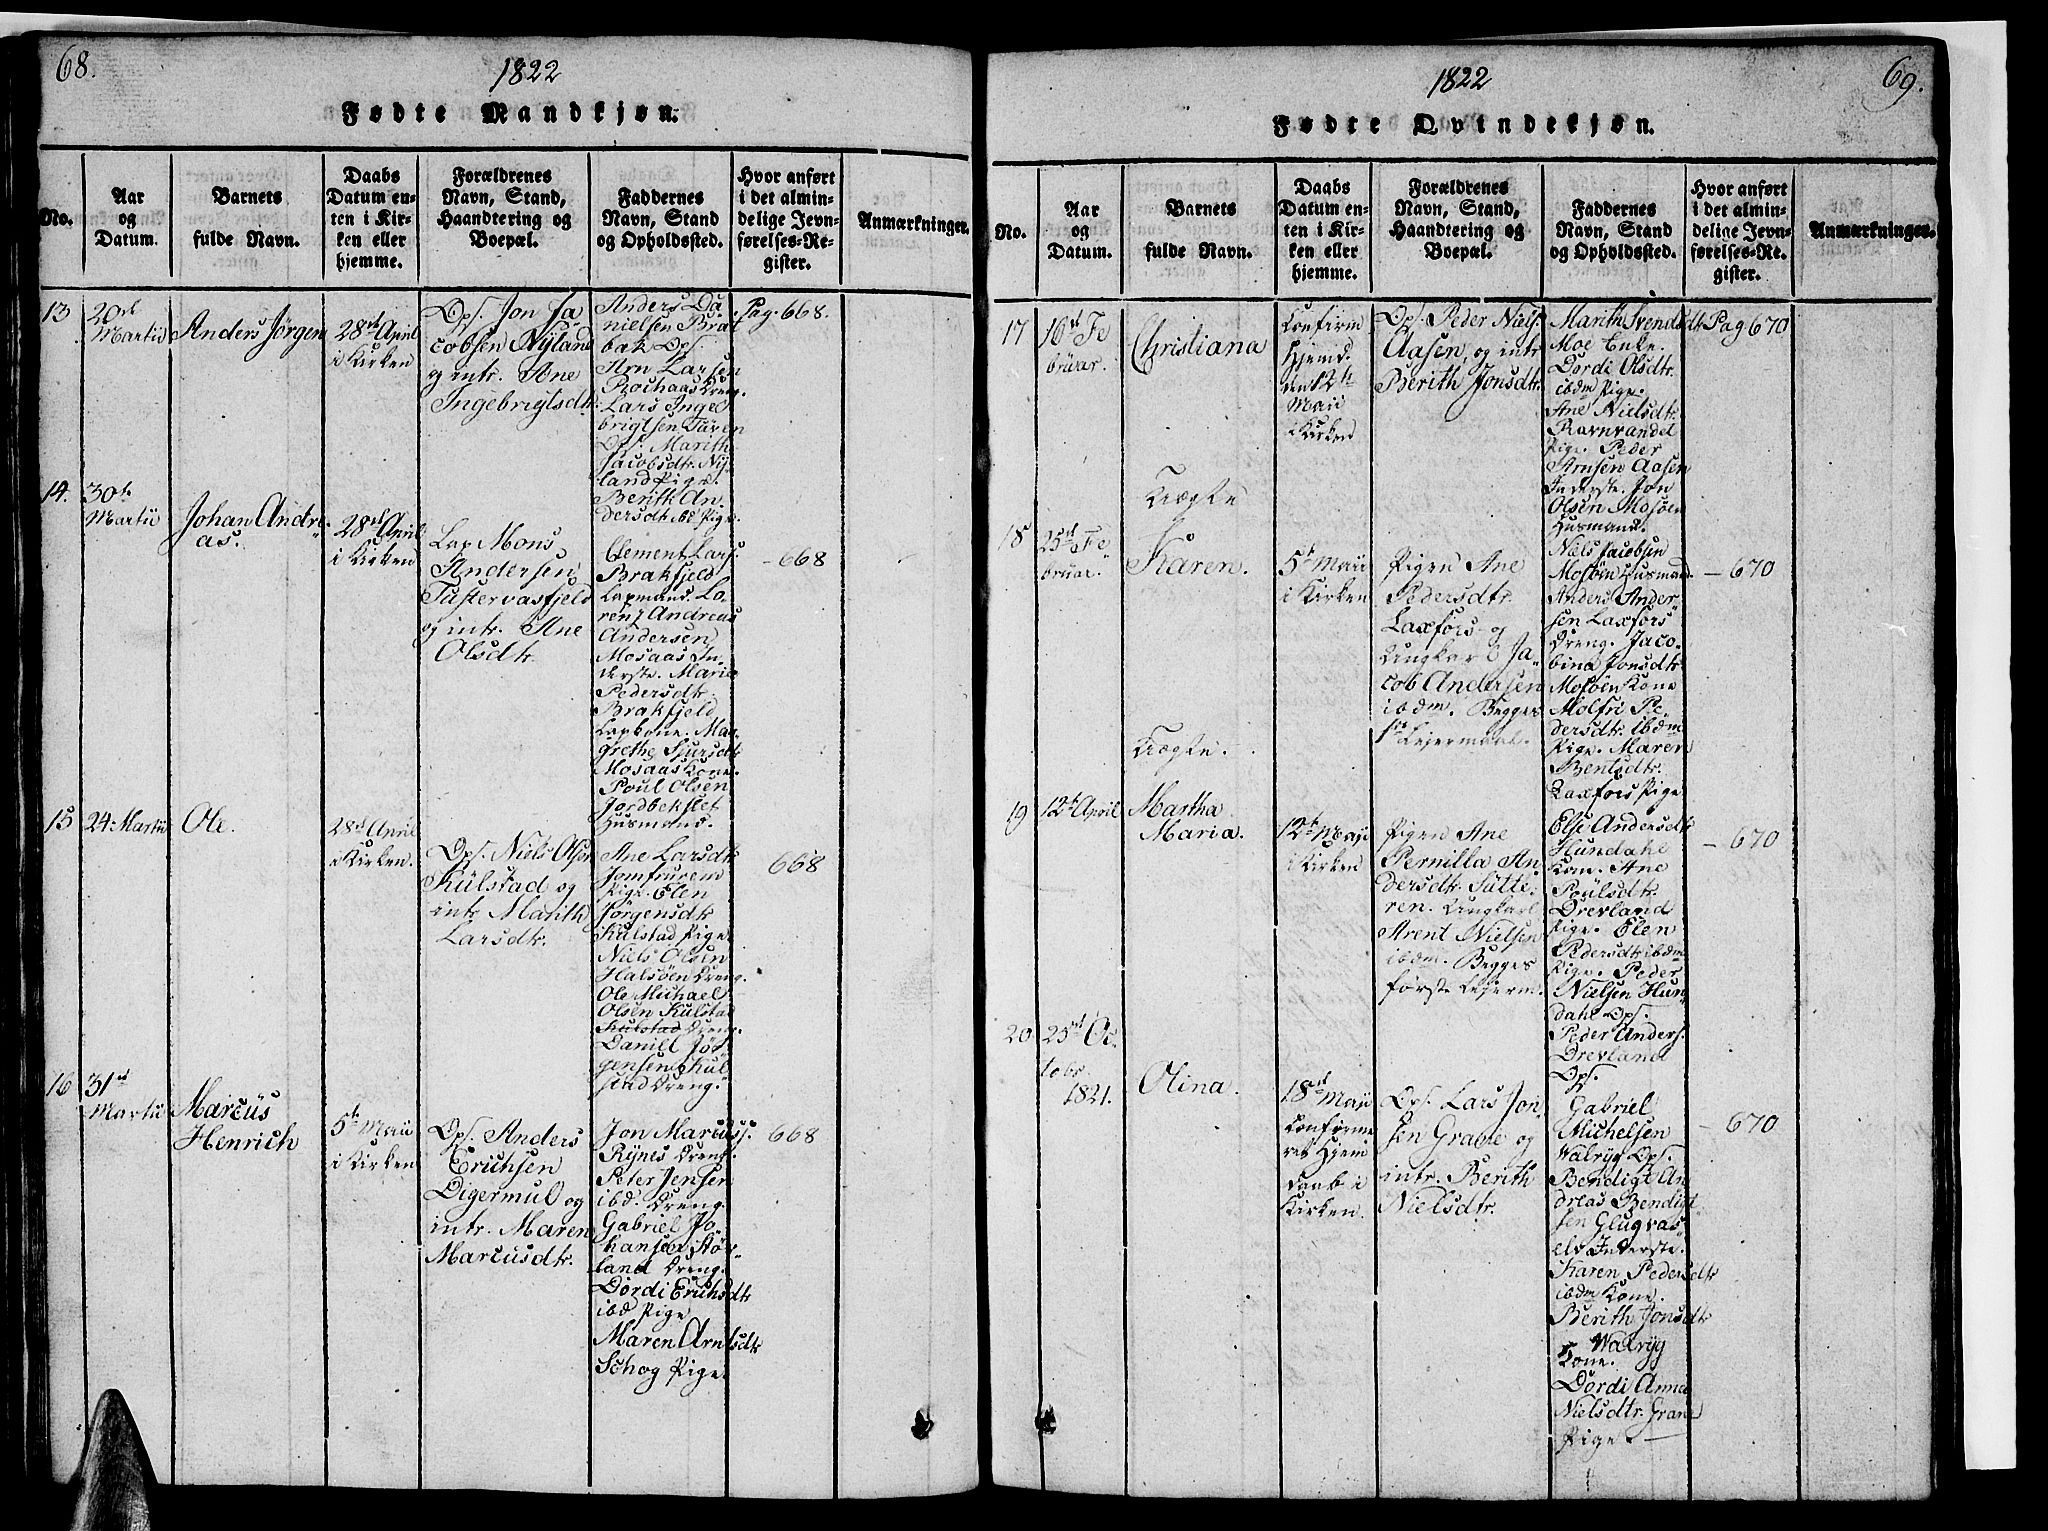 68.
1822
Fødte Mandkjøn.
No.
Aar
og
Datum.
Barnets
fulde Navn.
Daabs
Datum en-
ten i Kir-
ken eller
hjemme.
Forældrenes
Navn, Stand,
Haandtering og
Boepæl.
Faddernes
Navn, Stand
og Opholdssted.
Hvor anført
i det almin-
delige Jevn-
førelses-Re-
gister.
Anmærkninger.
13
20de
Martii
Anders Jörgen
28de April
i Kirken
Ops. Jon Ja
cobsen Nyland
og intr. Ane
Ingebrigtsdtr.
Anders Da
nielsen Brat
bak Ops.
Arn Larsen
Rochaas Dreng.
Lars Inge
brigtsen Taven
Ops. Marith
Jacobsdtr. Ny
land Pige.
Berith An
dersdtr. ibd Pige.
Pag. 668.
14.
30te
Martii
Johan Andre
as.
28de April
i Kirken
Lap Mons
Andersen
Tustervasfjeld
og intr. Ane
Olsdtr.
Clement Lars.
Brakfjeld
Lapmand. Lo
renz Andreas
Andersen
Mosaas In
derste. Marie
Pedersdtr.
Brakfjeld
Lapkone. Mar
grethe Sjursdtr
Mosaas Kone.
Poul Olsen
Jordbekslet
Husmand.
- 668
15
24 Martii
Ole.
28de April
i Kirken.
Ops. Niels Olsen
Kulstad og
intr. Marith
Larsdtr.
Ane Larsdtr
Jomfrurem
Pige. Elen
Jörgensdtr
Kulstad Pige
Niels Olsen
Halsöen Dreng.
Ole Michael
Olsen Kulstad
Kulstad Dreng.
Daniel Jör
gensen Kul
stad Dreng.
668
16
31te
Martii
Marcüs
Henrich
5te Maii
i Kirken
Ops. Anders
Erichsen
Digermul og
intr. Maren
Marcusdtr.
Jon Marcuss.
Rynes Dreng.
Peter Jensen
ibd. Dreng.
Gabriel Jo
hansen Stör
land Dreng.
Dordi Erichsdtr
ibd Pige
Maren Arntsdtr
Schog Pige.
668
69.
1822
Fødte Qvindekjøn.
No.
Aar
og
Datum.
Barnets
fulde Navn.
Daabs
Datum en-
ten i Kir-
ken eller
hjemme.
Forældrenes
Navn, Stand,
Haandtering og
Boepæl.
Faddernes
Navn, Stand
og Opholdssted.
Hvor anført
i det almin-
delige Jevn-
førelses-Re-
gister.
Anmærkninger.
17
16de Fe
bruar.
Christiana
Confirm
Hjemd.
den 12te
Maii
i Kirken
Ops. Peder Niels.
Aasen, og intr
Berith Jonsdtr.
Marith Svendsdtr
Moe Enke.
Dordi Olsdtr.
ibdm Pige.
Ane Nielsdtr.
Ravnvandet
Pige. Peder
Arnsen Aasen
Inderste. Jon
Olsen Mosöen
Husmand.
Pag 670
Uægte
18
25de Fe
bruar.
Karen.
5te Maii
i Kirken
Pigen Ane
Pedersdtr.
Laxfors og
Ungkarl Ja
cob Andersen
ibdm. Begges
1ste Leiermaal.
Niels Jacobsen
Mosöen Husmand.
Anders Ander
sen Laxfors
Dreng. Jaco
bina Jonsdtr
Mosöen Kone
Molfri Pe
dersdtr. ibdm
Pige. Maren
Bentsdtr.
Laxfors Pige
- 670
Uægte.
19
12te April
Martha
Maria.
12te Maii
i Kirken
Pigen Ane
Pernilla An
dersdtr. Sütte
ren. Ungkarl
Arent Nielsen
ibdm. Begges
förste Leierm.
Else Andersdtr
Hundahl
Kone. Ane
Poulsdtr.
Drevland
Pige. Elen
Pedersdtr ibdm
Pige. Peder
Nielsen Hun
dahl Ops.
Peder Anders.
Drevland
Ops.
- 670
20
25de Oc
tobr.
1821.
Olina.
18de Maii
Confirme
ret Hjem
daab i
Kirken.
Ops. Lars Jon
sen Grane og
intr. Berith
Nielsdtr.
Gabriel
Michelsen
Walryg Ops.
Bendigt An
dreas Bendigt
sen Glugvas
elv Inderste.
Karen Pedersdtr
ibdm Kone.
Berith Jonsdtr
Walryg
Kone.
Dordi Anna
Nielsdtr. Grane
Pige.
- 670